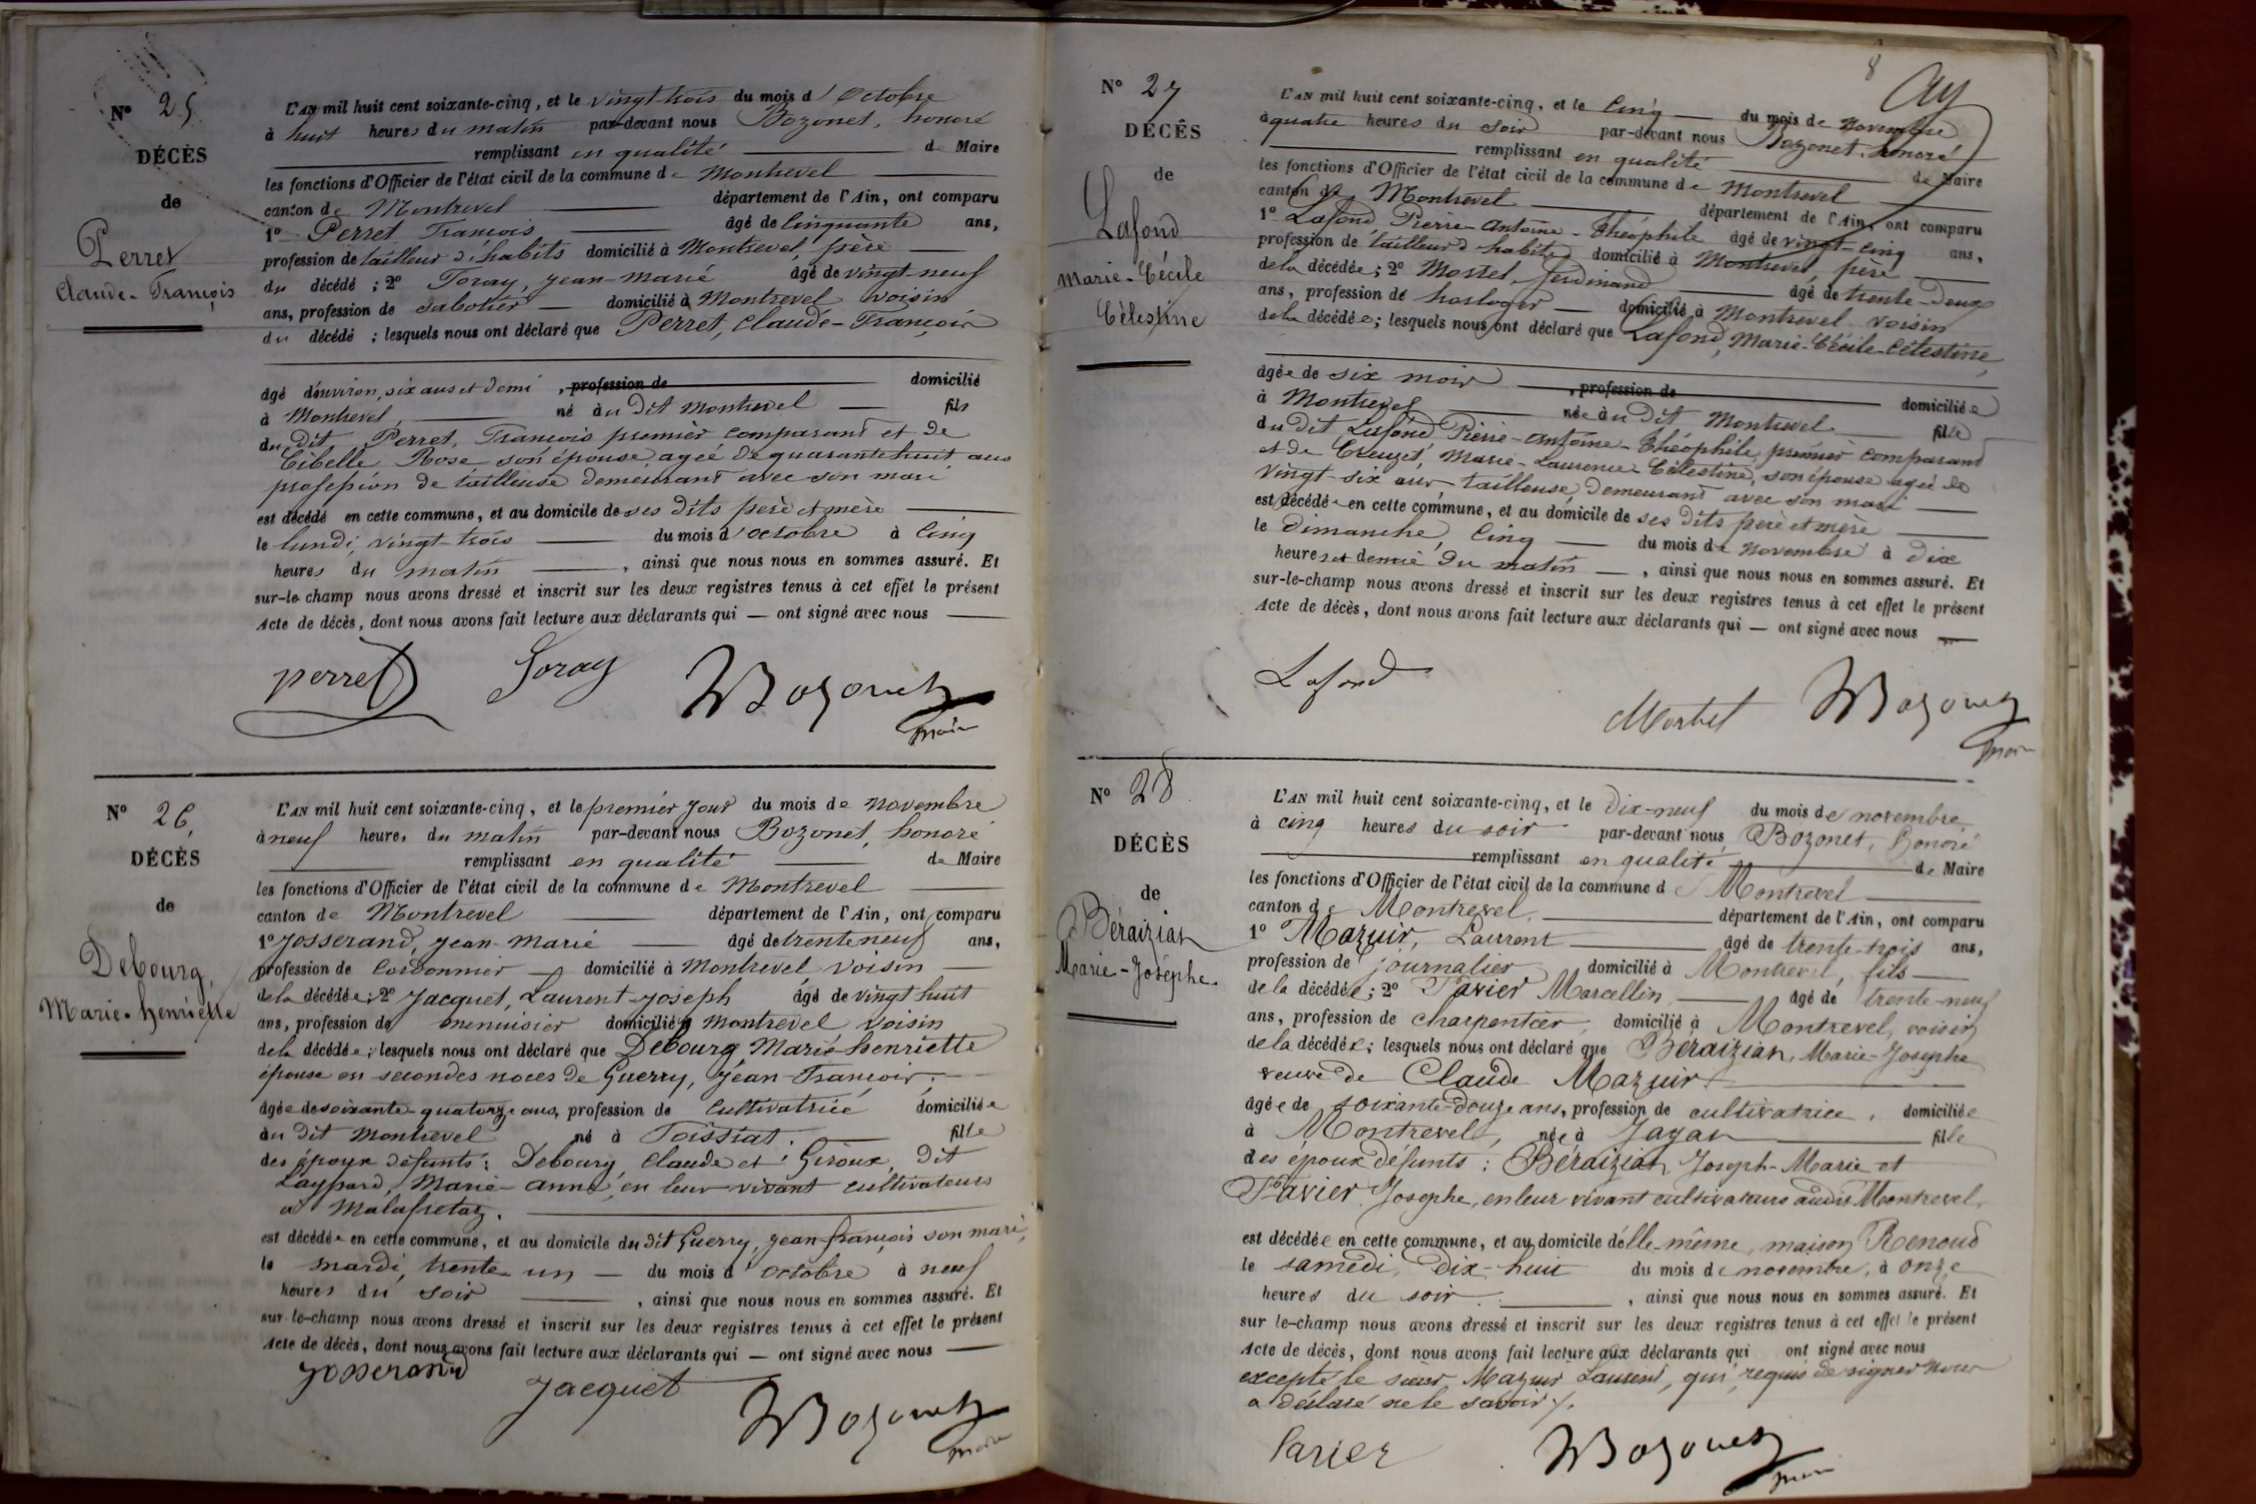 Nº 25
DÉCÈS
de
Perret
Claude-François
L'AN mil huit cent soixante-cinq, et le vingt trois du mois d'Octobre
à huit heures du matin par-devant nous Bozonet, honoré
remplissant en qualité de Maire
les fonctions d'Officier de l'état civil de la commune de Montrevel
canton de Montrevel département de l'Ain, ont comparu
1º Perret François âgé de Cinquante ans,
profession de tailleur d'habits domicilié à Montrevel, père
du décédé ; 2º Foray, jean-marie âgé de vingt-neuf
ans, profession de Sabotier domicilié à Montrevel voisin
du décédé ; lesquels nous ont déclaré que Perret, Claude-François
âgé d'environ, six ans et demi , profession de domicilié
à Montrevel, né au dit Montrevel fils
du dit Perret, François premier comparant et de
Cibelle Rose son épouse, agée de quarante huit ans
profession de tailleuse demeurant avec son mari
est décédé en cette commune, et au domicile de ses dits père et mère
le lundi, vingt-trois du mois d'octobre à Cinq
heures du matin , ainsi que nous nous en sommes assuré. Et
sur-le-champ nous avons dressé et inscrit sur les deux registres tenus à cet effet le présent
Acte de décès, dont nous avons fait lecture aux déclarants qui — ont signé avec nous
perret Foray Bozonet
maire
Nº 26
DÉCÈS
de
Debourg,
Marie-henriette
L'AN mil huit cent soixante-cinq, et le premier jour du mois de novembre
à neuf heures du matin par-devant nous Bozonet, honoré
remplissant en qualité de Maire
les fonctions d'Officier de l'état civil de la commune de Montrevel
canton de Montrevel département de l'Ain, ont comparu
1º Josserand, jean-marie âgé de trente neuf ans,
profession de Cordonnier domicilié à Montrevel voisin
de la décédée ; 2º Jacquet, Laurent-joseph âgé de vingt huit
ans, profession de menuisier domicilié à Montrevel voisin
de la décédée ; lesquels nous ont déclaré que Debourg Marie-henriette
épouse en secondes noces de Guerry, jean-François,
âgée de soixante-quatorze ans, profession de Cultivatrice domiciliée
au dit Montrevel né à Foissiat. fille
des époux défunts : Debourg, Claude et Giroux, dit
Laypard, Marie-anne, en leur vivant cultivateurs
à Malafretaz.
est décédée en cette commune, et au domicile du dit Guerry, jean-françois son mari,
le mardi, trente-un du mois d'octobre à neuf
heures du soir , ainsi que nous nous en sommes assuré. Et
sur-le-champ nous avons dressé et inscrit sur les deux registres tenus à cet effet le présent
Acte de décès, dont nous avons fait lecture aux déclarants qui — ont signé avec nous
Josserand Jacquet Bozonet
maire
8
Nº 27
DÉCÈS
de
Lafond
Marie-Cécile
Célestine
L'AN mil huit cent soixante-cinq, et le Cinq du mois de novembre
à quatre heures du soir par-devant nous Bozonet, honoré
remplissant en qualité de Maire
les fonctions d'Officier de l'état civil de la commune de Montrevel
canton de Montrevel département de l'Ain, ont comparu
1º Lafond Pierre-antoine-Théophile âgé de vingt-cinq ans,
profession de tailleur d'habits domicilié à Montrevel, père
de la décédée ; 2º Mortel, ferdinand âgé de trente-deux
ans, profession de horloger domicilié à Montrevel voisin
de la décédée ; lesquels nous ont déclaré que Lafond, Marie-Cécile-Célestine,
âgée de six mois , profession de domiciliée
à Montrevel née au dit Montrevel fille
du dit Lafond Pierre-antoine-Théophile, premier comparant
et de Creuzet, Marie-Laurence-Célestine, son épouse agée de
vingt-six ans tailleuse, demeurant avec son mari
est décédée en cette commune, et au domicile de ses dits père et mère
le dimanche, Cinq du mois de novembre à dix
heures et demie du matin , ainsi que nous nous en sommes assuré. Et
sur-le-champ nous avons dressé et inscrit sur les deux registres tenus à cet effet le présent
Acte de décès, dont nous avons fait lecture aux déclarants qui — ont signé avec nous
Lafond Mortel Bozonet
maire
Nº 28
DÉCÈS
de
Béraizian
Marie-Josèphe.
L'AN mil huit cent soixante-cinq, et le dix-neuf du mois de novembre
à cinq heures du soir par-devant nous Bozonet, honoré
remplissant en qualité de Maire
les fonctions d'Officier de l'état civil de la commune de Montrevel
canton de Montrevel, département de l'Ain, ont comparu
1º Mazuir, Laurent âgé de trente-trois ans,
profession de journalier domicilié à Montrevel, fils
de la décédée ; 2º Pavier Marcellin âgé de trente-neuf
ans, profession de charpentier, domicilié à Montrevel, voisin
de la décédée ; lesquels nous ont déclaré que Béraizian, Marie-Josephe
veuve de Claude Mazuir
âgée de soixante-douze ans, profession de cultivatrice, domiciliée
à Montrevel, née à Jayat fille
des époux défunts : Béraizian, Joseph-Marie et
Pavier Josephe, en leur vivant cultivateurs audit Montrevel,
est décédée en cette commune, et au domicile d'elle-même, maison Renoud
le samedi, dix-huit du mois de novembre, à onze
heures du soir , ainsi que nous nous en sommes assuré. Et
sur le-champ nous avons dressé et inscrit sur les deux registres tenus à cet effet le présent
Acte de décès, dont nous avons fait lecture aux déclarants qui ont signé avec nous
excepté le sieur Mazuir Laurent, qui requis de signer nous
a déclaré ne le savoir
Pavier Bozonet
maire